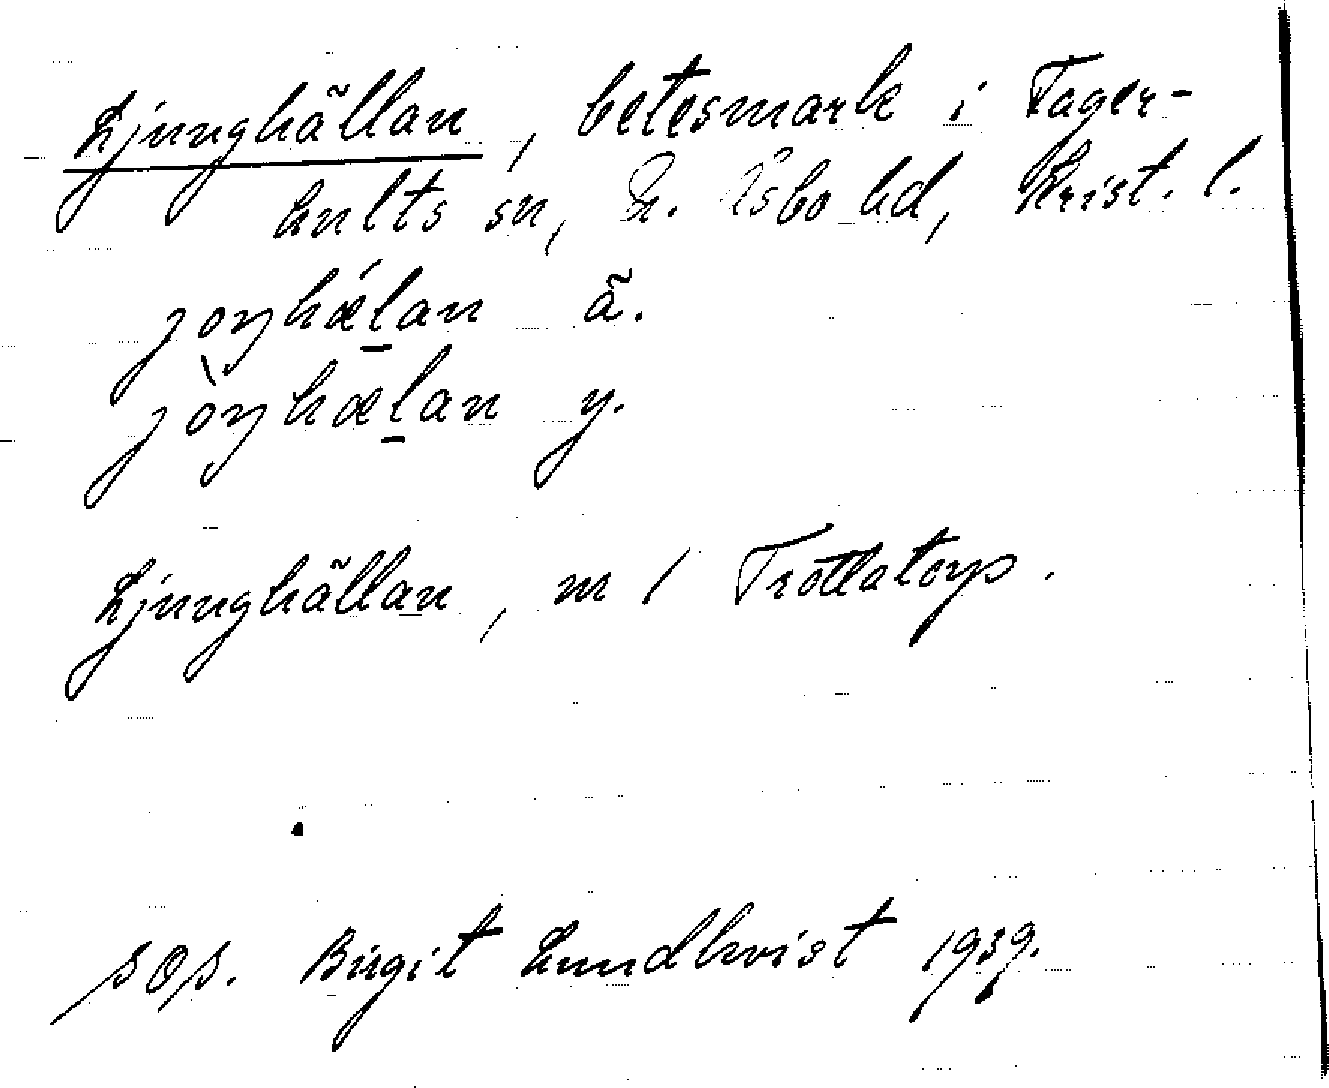 Ljunghällan, betesmark i Tager-
hults sn, Ö. Åsbo hd, Krist. l.
joŋhǽlan ä.
jòŋhælan y.
Ljunghällan, m / Trollatorp.
sos. Birgit Lundkvist 1939.